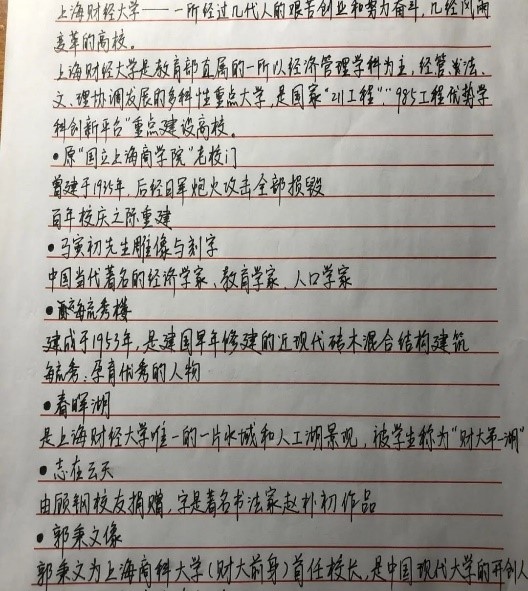 上海财经大学——一所经过几代人的艰苦创业和努力奋斗，几经风雨
变革的高校。
上海财经大学是教育部直属的一所以经济管理学科为主，经、管、法、
文、理协调发展的多科性重点大学，是国家"211工程"，"985工程优势学
科创新平台"重点建设高校。
•原"国立上海商学院"老校门
曾建于1935年，后经日军炮火攻击全部损毁
百年校庆之际重建
•马寅初先生雕像与刻字
中国当代著名的经济学家、教育学家、人口学家
•毓秀楼
建成于1953年，是建国早年修建的近现代砖木混合结构建筑
毓秀：孕育优秀的人物
•春晖湖
是上海财经大学唯一的一片水域和人工湖景观，被学生称为"财大第一湖"
•志在云天
由顾钢校友捐赠，字是著名书法家赵朴初作品
•郭秉文像
郭秉文为上海商科大学（财大前身）首任校长，是中国现代大学的开创人